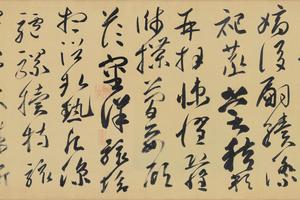 嫡後嗣續祭
祀蒸嘗稽顙
再拜悚懼恐惶
牋牒簡要顧
答審詳骸垢
想浴執熱願涼
驢騾犢特駭